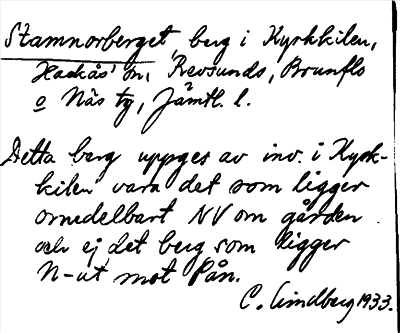 Stamnorberget, berg i Kyrkkilen,
Hackås' sn, Revsunds, Brunflo
o Näs tg, Jämtl. l.
Detta berg uppges av inv. i Kyrk-
kilen vara det som ligger
omedelbart NV om gården
och ej det berg som ligger
N-ut, mot Pån.
C. Lindberg 1933.